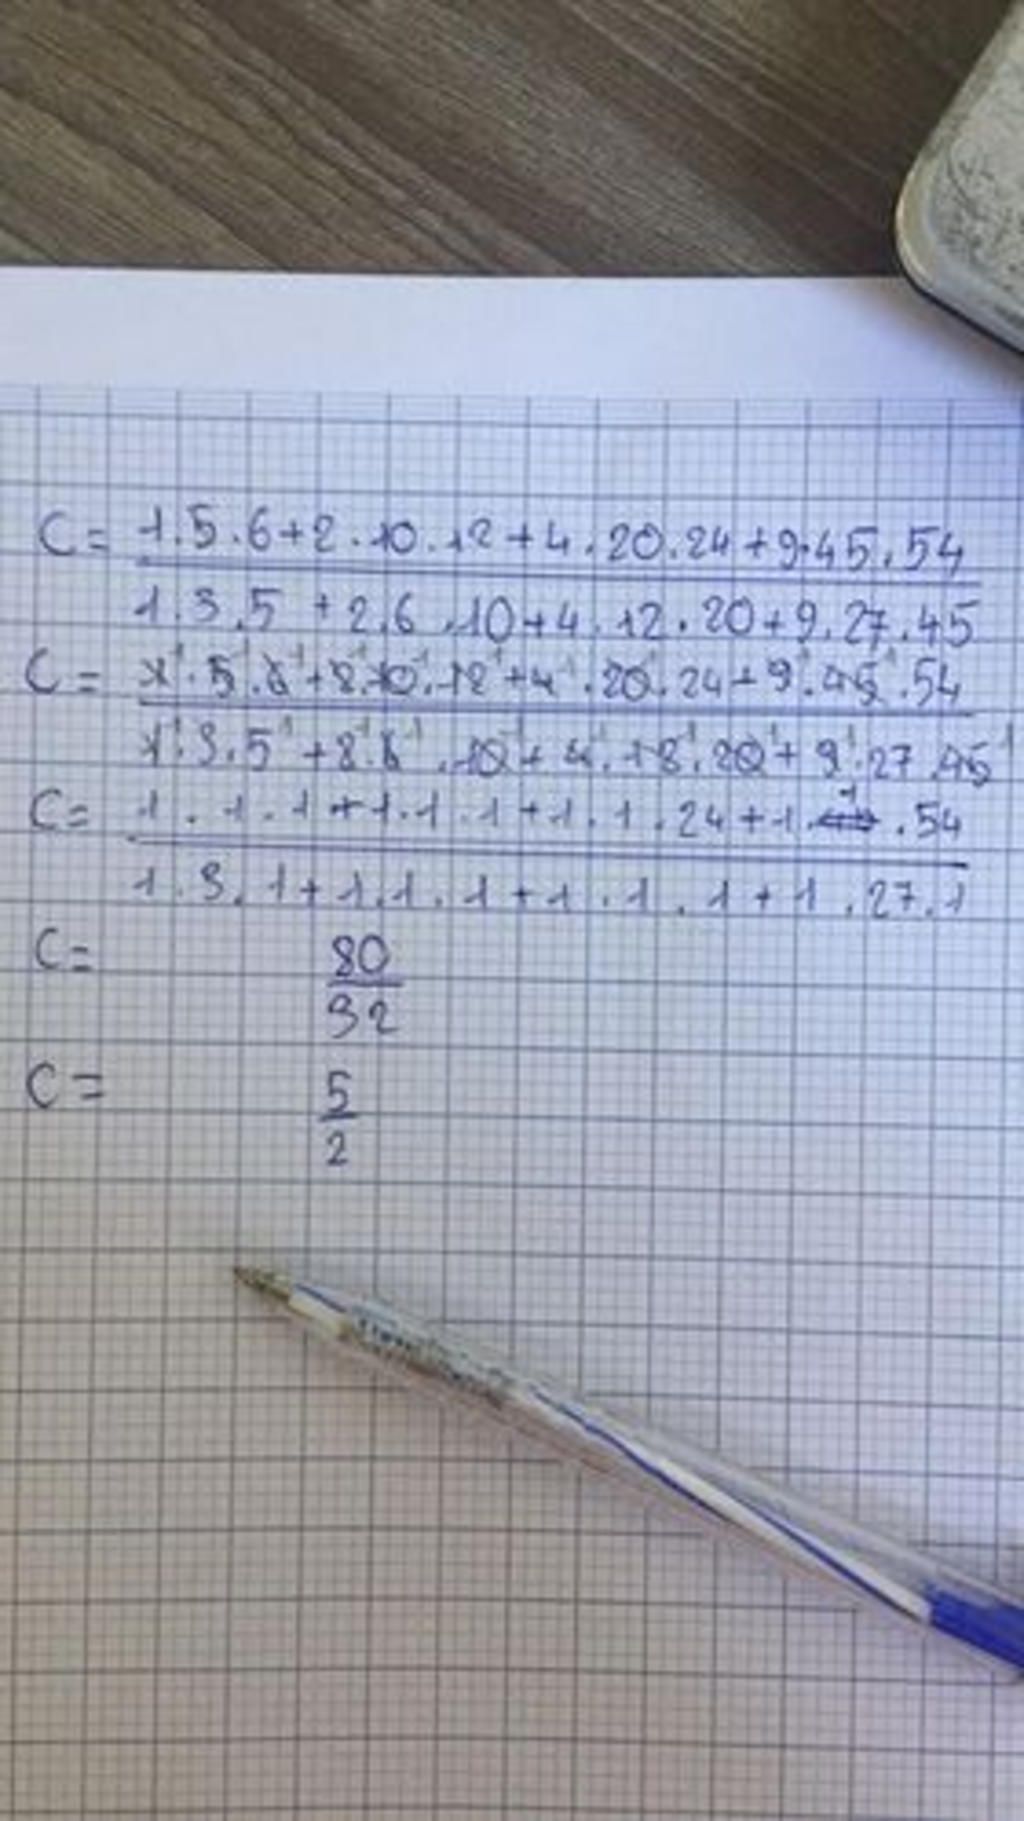 C = 1.5.6+2.10.12+4.20.24+9.45.54
1.3.5 +2.6.10+4.12.20+9.27.45
C = 1¹.5.6¹+2.10¹.12¹+4¹.20¹.24+9¹.45¹.54
1¹.3.5¹+2.6¹.10¹+4¹.12.20¹+9¹.27.45¹
C = 1.1.1+1.1.1+1.1.24+1.1.54
1.3.1+1.1.1+1.1.1+1.27.1
C = 80
32
C = 5
2